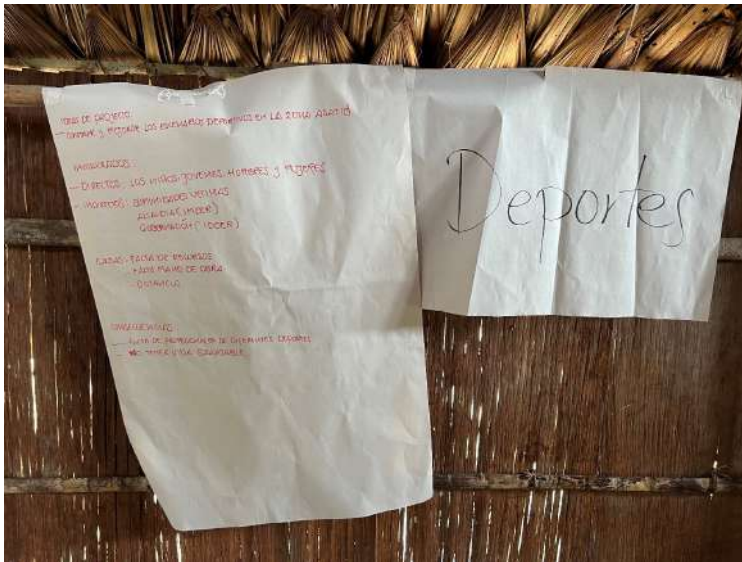 IDEAS DE PROYECTO
- CONSTRUIR Y MEJORAR LOS ESCENARIOS DEPORTIVOS EN LA ZONA
INVOLUCRADOS:
- DIRECTOS: LOS NIÑOS, JOVENES, HOMBRES Y MUJERES
- INDIRECTOS: COMUNIDADES VECINAS
ALCALDIA (IMDER)
GOBERNACIÓN (IDDER)
CAUSAS: - FALTA DE RECURSOS
- FALTA MANO DE OBRA
CONSECUENCIAS
- FALTA DE PROFESIONALES DE DIFERENTES DEPORTES
- NO TENER VIDA SALUDABLE
Deportes